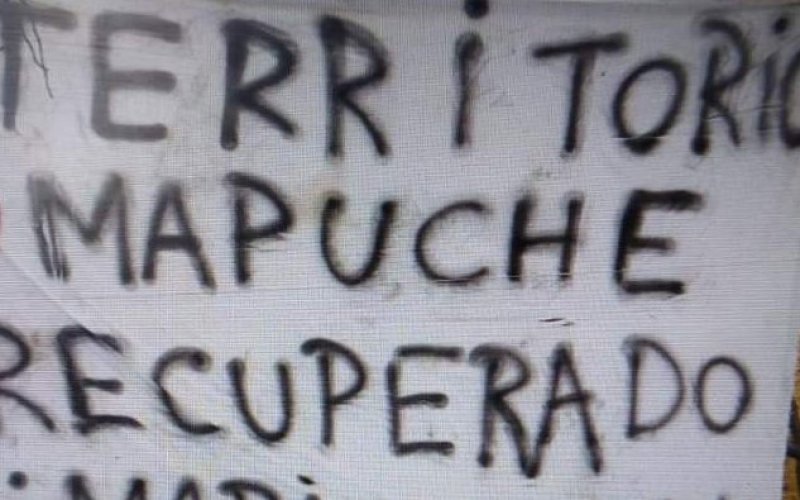 TERRITORIO
MAPUCHE
RECUPERADO